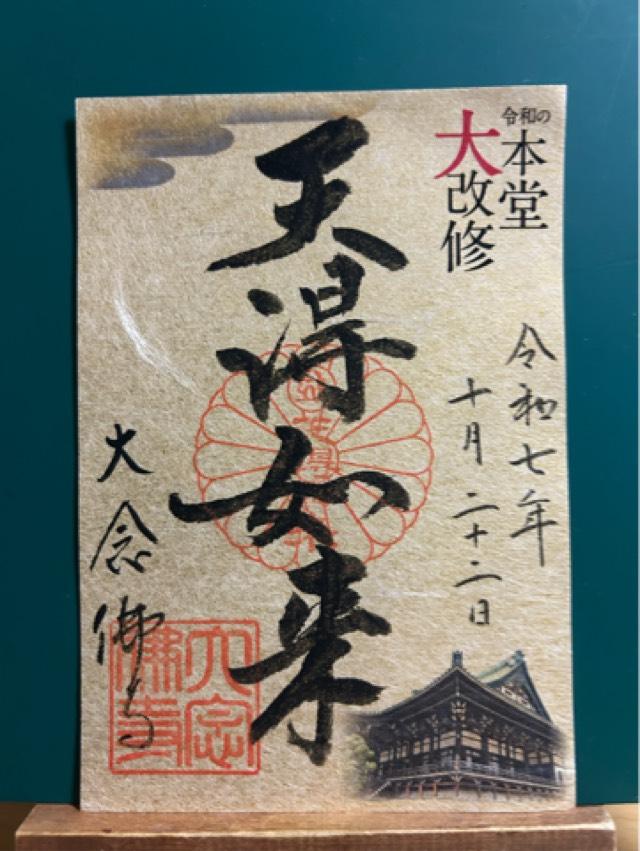 令和の
本堂
大改修
令和七年
十月二十二日
天得如来
大念佛寺
大念
佛寺